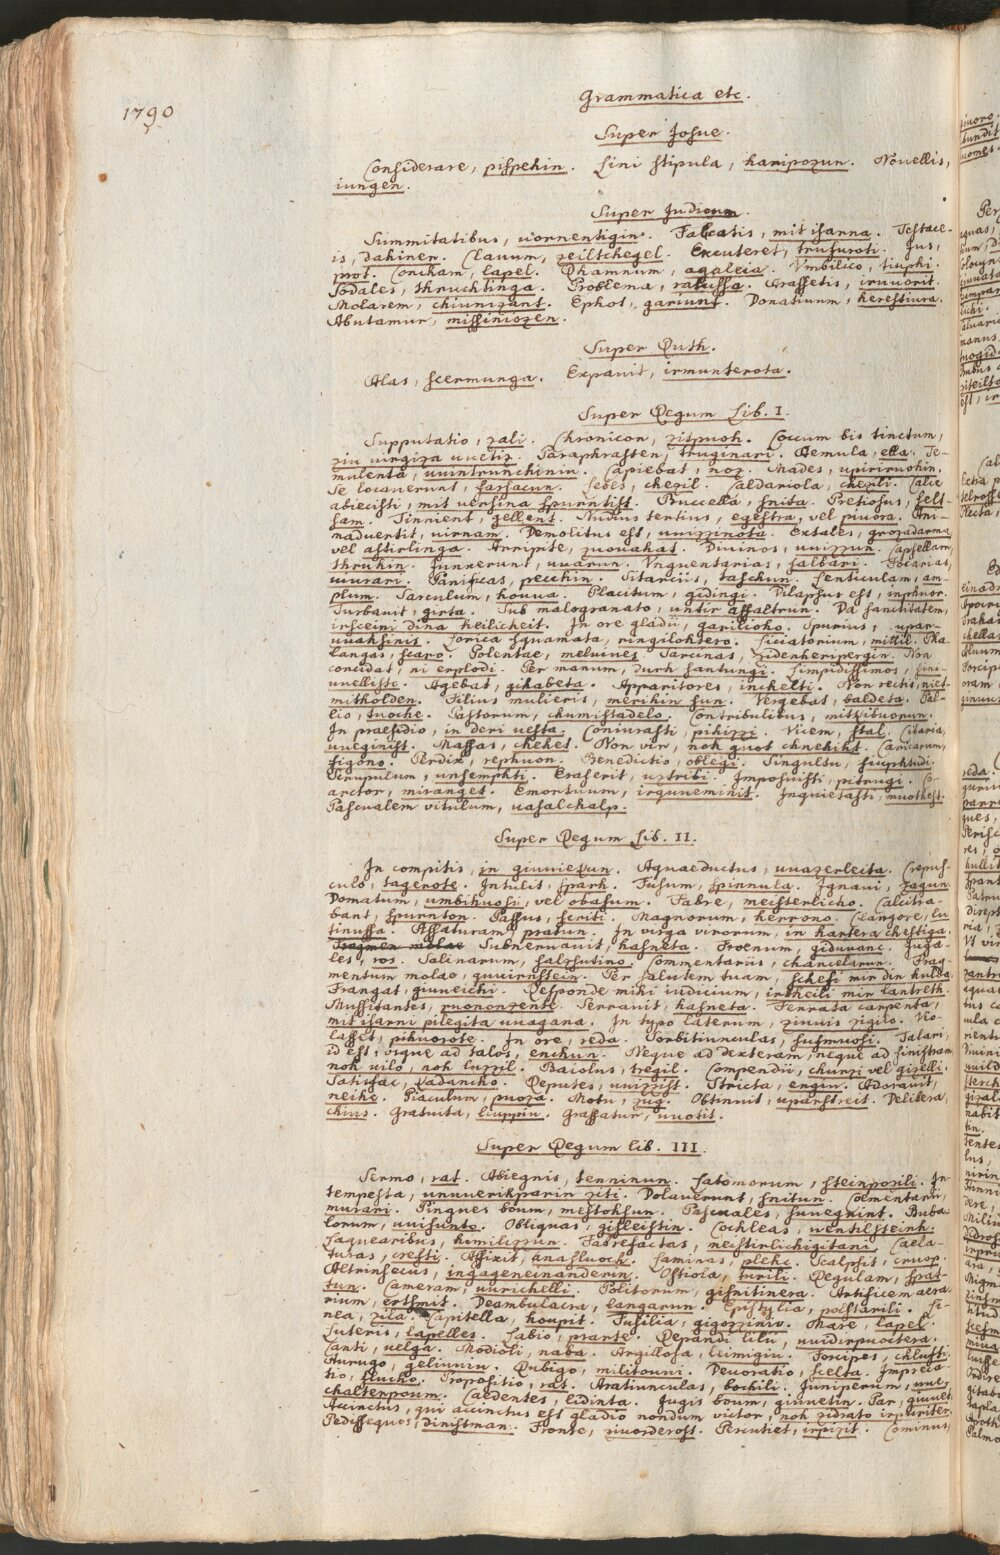 1790
Grammatica etc.
Super Josue.
Considerare, pispehin. Lini stipula, hanipozun. Novellis,
iungen.
Super Judicum.
Summitatibus, uornentigin. Falcatis, mit isanna. Testace-
is, dahinen. Clauum, zeiltchegel. Excuteret, trufuroti. Jus,
prot. Concham, lapel. Rhamnum, agaleia. Vmbilico, tiuphi.
Sodales, thruchtinga. Problema, ratussa. Grassetis, iruuorit.
Molarem, chiunizant. Ephot, gariunt. Donatiunm, herestiura.
Abutamur, missiniozen.
Super Ruth.
Alas, scermunga. Expauit, irmunterota.
Super Regum Lib. I.
Supputatio, zali. Chronicon, zitpuoh. Coccum bis tinctum,
ziu uirgiza uuetiz. Paraphrasten, truginari. Aemula, ella. Te-
mulenta, uuintrunchinin. Capiebat, noz. Mades, upiriruohin.
Se locauerunt, farsacun. Lebes, chezil. Caldariola, chezili. Calce
abiecisti, mit uersina spurntist. Buccella, snita. Pretiosus, sel-
sam. Tinnient, zellent. Nudius tertius, egestra, vel piuora. Ani-
maduertit, uirnam. Demolitus est, uuizzinota. Extales, grozadarma
vel astirlinga. Arripite, zuouahat. Diuinos, uuizzun. Capsellam,
thruhin. Junnerunt, uuarun. Vnguentarias, salbari. Focarias,
uiurari. Panificas, pecchin. Sitarciis, taschun. Lenticulam, am-
plum. Sarculum, houua. Placitum, gidingi. Dilapsus est, inphuor.
Turbauit, girta. Sub malogranato, untir affaltrun. Da sanctitatem,
irsceini dina heilicheit. In ore gladii, garilioho. Spurius, uran-
uuahsinis. Lorica squamata, ringilohtero. Liciatorium, mittil. Pha-
langas, scaro. Polentae, meluines. Sarcinas, zidenheripergin. Non
concidat, ni erplodi. Per manum, durh santungi. Limpidissimos, sini-
uuelliste. Agebat, gihabeta. Apparitores, inchelti. Non rectis, niet
mitholden. Filius mulieris, merihin sun. Vergebas, baldeta. Pal-
lio, tuoche. Pastorum, chumistadelo. Contribulibus, mitzibuorun.
In praesidio, in deri uesta. Coniurasti, pihizzi. Vicem, stal. Citaria,
uueginist. Massas, chehet. Non vir, noh guot chnehiht. Caricarum,
figono. Perdix, rephuon. Benedictio, oblegi. Singultu, siuphtudi.
Scrupulum, unsemphti. Eraserit, uztribi. Imposuisti, petrugi. Co-
arctor, miranget. Emortuum, irquueminit. Inquietasti, muothest.
Pascualem vitulum, uasalchalp.
Super Regum Lib. II.
In compitis, in giuuiezun. Aquaeductus, uuazerleita. Crepus-
culo, tagerote. Intulit, sparh. Fusum, spinnula. Ignaui, zagun.
Domatum, umbihuosi, vel obasum. Fabre, meisterlicho. Calcitra-
bant, spurnton. Passus, scriti. Magnorum, herrono. Clangore, lu-
tinussa. Assaturam, pratun. In virga virorum, in hartera chestiga.
Subneruauit, hahsneta. Froenum, giduuanc. Juga-
les, ros. Salinarum, salzsutino. Commentariis, chancelarun. Frag-
mentum molae, quuirnstein. Per salutem tuam, schesi mir din hulda.
Frangat, giuueichi. Responde mihi iudicium, irtheili mir lantreth.
Mussitantes, runonzente. Serrauit, hahsneta. Ferrata carpenta,
mit isarni pilegita uuagana. In typo laterum, ziuuis zigilo. Vio-
lasset, pihuorote. In ore, reda. Sorbitiunculas, sufmuosi. Talari,
id est, vsque ad talos, enchun. Neque ad dexteram, neque ad sinistram,
noh uilo, noh luzzil. Baiolus, tregil. Compendii, churzi vel gizelli.
Satisfac, zadancho. Deputes, uuizzist. Stricta, engin. Adorauit,
neihc. Piaculum, puoza. Motu, zug. Obtinuit, uparstreit. Delibera,
chius. Gratuita, liuppin. Grassatur, uuotit.
Super Regum lib. III.
Sermo, rat. Abiegnis, tenninun. Latomorum, steinpozili. In-
tempesta, unuuerihparin ziti. Dolauerunt, snitun. Coementarii,
murari. Pingues boum, mestohsun. Pascuales, suuegrint. Buba-
lorum, uuisunto. Obliquas, gisleiftin. Cochleas, wentilsteinh.
Laquearibus, himilizzun. Fabrefactas, meistirlichigitani. Caela-
turas, crefti. Affixit, anasluoch. Laminas, plehc. Scalpsit, cruop.
Altrinsecus, ingageneinanderun. Ostiola, turili. Regulam, spat-
tun. Cameram, uurichelli. Politorum, gisnitinera. Artificem aera-
rium, ertsmit. Deambulacra, langarun. Epistylia, polstarili. Li-
nea, zila. Capitella, houpit. Fusilia, gigozziniv. Mare, lapel.
Luteris, lapelles. Labio, prarte. Repandi lilii, uuidirpuoctera.
Canti, uelga. Modioli, naba. Argillosa, leimigiu. Forcipes, chlufti.
Aurugo, geliuuiu. Rubigo, militouui. Deuoratio, scelta. Impreca-
tio, fluoho. Propositio, rat. Aratiunculas, bochili. Juniperum, uue-
chalterpoum. Caedentes, lidinta. Jugis boum, giuuetin. Par, giuuet.
Accinctus, qui accinctus est gladio nondum victor, noh zidrato irpuriter.
Pedissequos, dinistman. Fronte, ziuorderost. Percutiet, irpizit. Cominus,